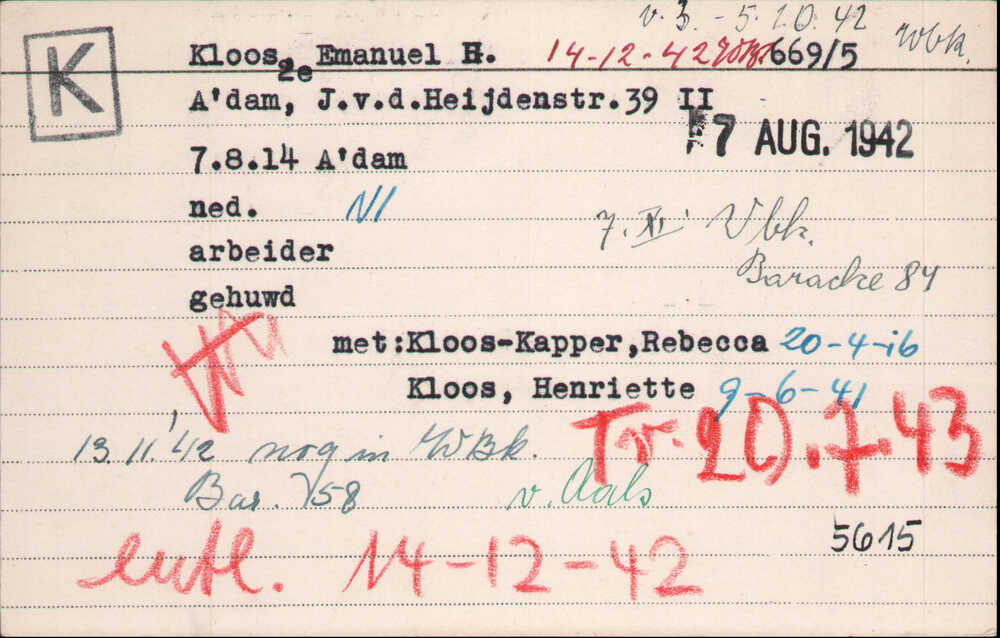 v. 3. - 5.10.42 Wbk.
K
Kloos, Emanuel H. 14-12-42 669/5
2e
A'dam, J.v.d.Heijdenstr.39 II
7 AUG. 1942
7.8.14 A'dam
ned. NI
7. XI Wbk.
arbeider
Baracke 84
gehuwd
met:Kloos-Kapper,Rebecca 20-4-16
Kloos, Henriette 9-6-41
Tr. 20.7.43
13.11.'42 nog in WBk.
Bar. 58 v. Aals
5615
entl. 14-12-42